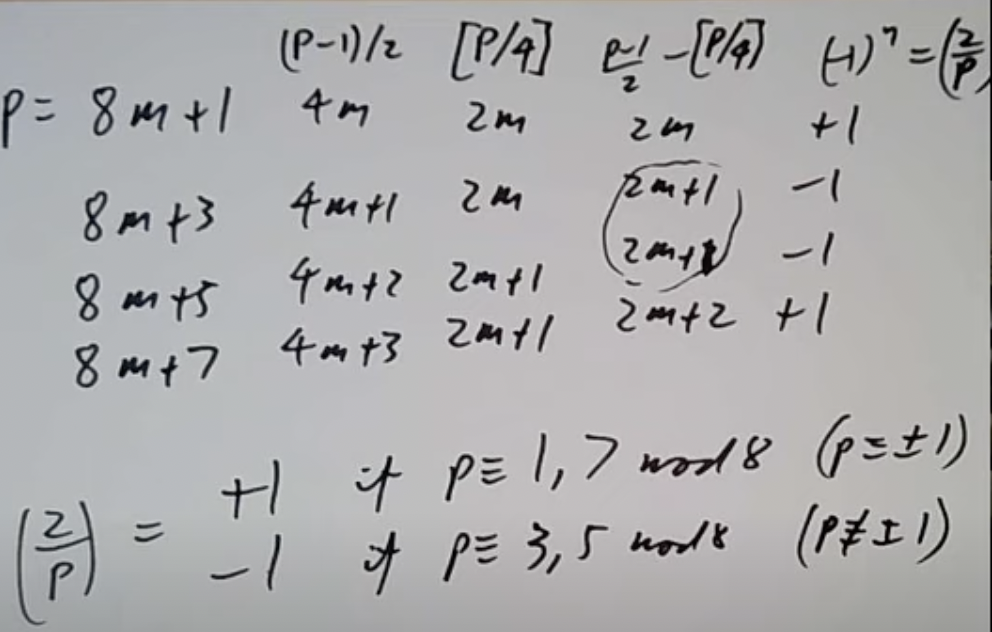 (P-1)/2 [P/4] P-1/2 - [P/4] (-1)^n = (2/P)
P = 8m+1 4m 2m 2m +1
8m+3 4m+1 2m 2m+1 -1
8m+5 4m+2 2m+1 2m+1 -1
8m+7 4m+3 2m+1 2m+2 +1
(2/P) = +1 if P ≡ 1, 7 mod 8 (P ≡ ±1)
-1 if P ≡ 3, 5 mod 8 (P ≢ ±1)